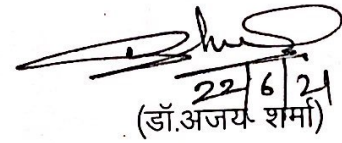 22/6/21
(डॉ.अजय शर्मा)